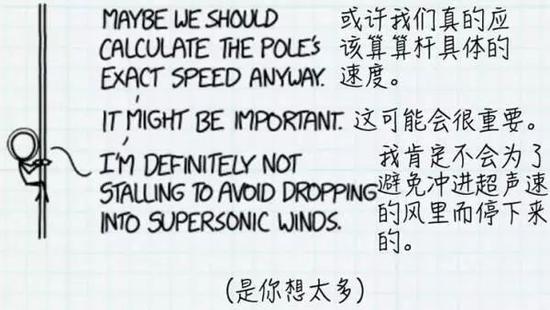 MAYBE WE SHOULD
CALCULATE THE POLE'S
EXACT SPEED ANYWAY.
或许我们真的应
该算算杆具体的
速度。
IT MIGHT BE IMPORTANT.
这可能会很重要。
I'M DEFINITELY NOT
STALLING TO AVOID DROPPING
INTO SUPERSONIC WINDS.
我肯定不会为了
避免冲进超声速
的风里而停下来
的。
(是你想太多)